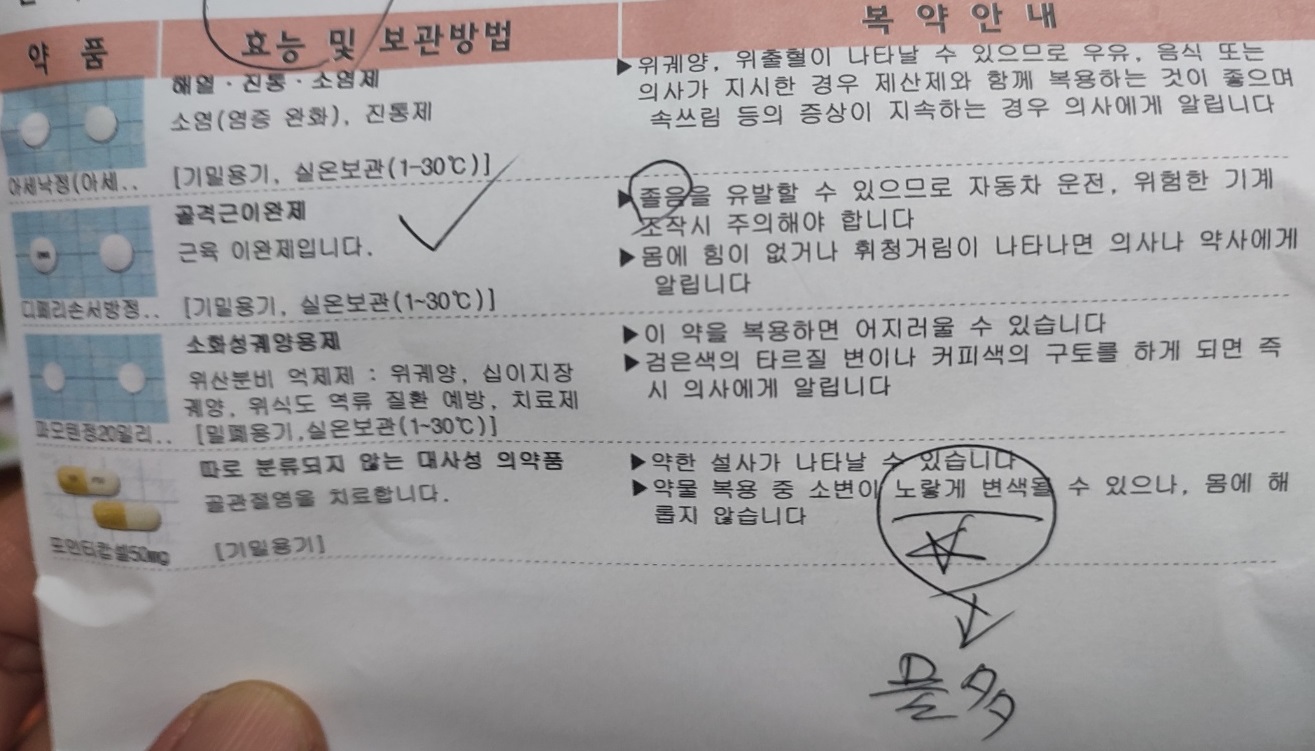 약 품
효능 및 보관방법
복 약 안 내
해열·진통·소염제
소염(염증 완화), 진통제
[기밀용기, 실온보관(1-30℃)]
아세낙정(아세..
▶위궤양, 위출혈이 나타날 수 있으므로 우유, 음식 또는
의사가 지시한 경우 제산제와 함께 복용하는 것이 좋으며
속쓰림 등의 증상이 지속하는 경우 의사에게 알립니다
골격근이완제
근육 이완제입니다.
[기밀용기, 실온보관(1~30℃)]
디페리손서방정..
▶졸음을 유발할 수 있으므로 자동차 운전, 위험한 기계
조작시 주의해야 합니다
▶몸에 힘이 없거나 휘청거림이 나타나면 의사나 약사에게
알립니다
소화성궤양용제
위산분비 억제제 : 위궤양, 십이지장
궤양, 위식도 역류 질환 예방, 치료제
[밀폐용기,실온보관(1~30℃)]
파모텐정20밀리..
▶이 약을 복용하면 어지러울 수 있습니다
▶검은색의 타르질 변이나 커피색의 구토를 하게 되면 즉
시 의사에게 알립니다
따로 분류되지 않는 대사성 의약품
골관절염을 치료합니다.
[기밀용기]
▶약한 설사가 나타날 수 있습니다
▶약물 복용 중 소변이 노랗게 변색될 수 있으나, 몸에 해
롭지 않습니다